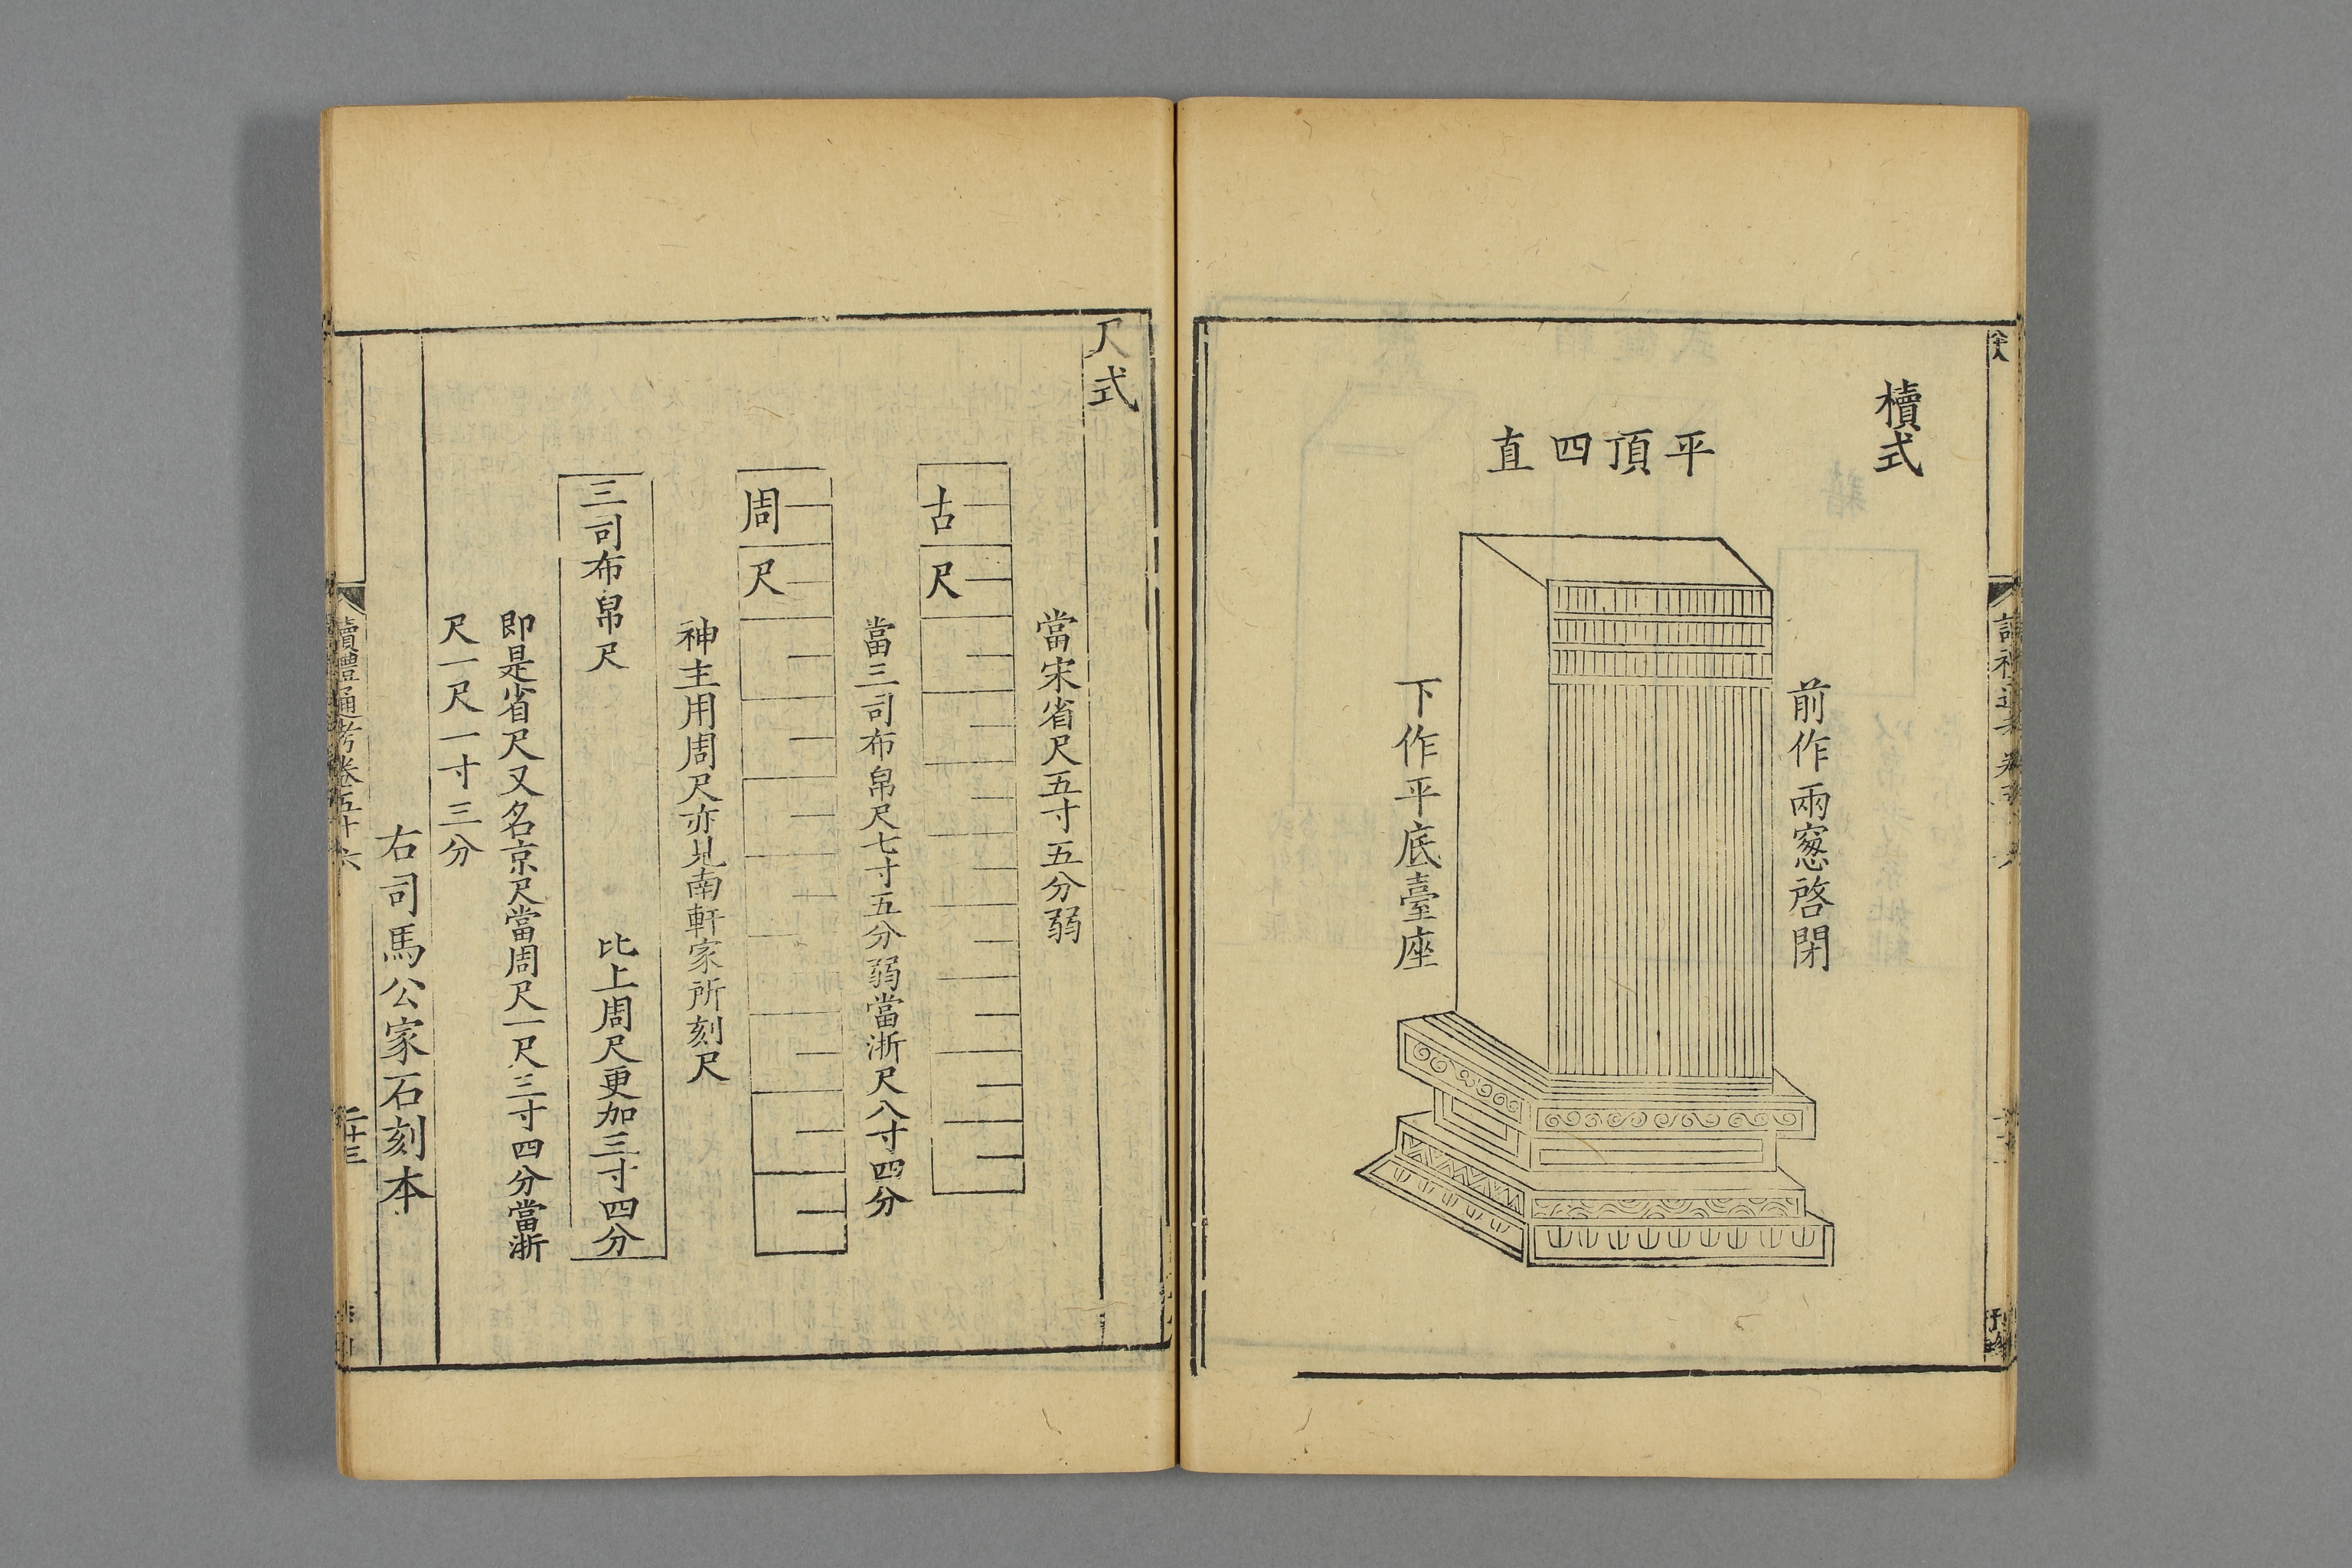 櫝式
平頂四直
前作兩窻啓閉
下作平底臺座
尺式
當宋省尺五寸五分弱
古尺
當三司布帛尺七寸五分弱當浙尺八寸四分
周尺
神主用周尺亦是南軒家所刻尺
三司布帛尺
比上周尺更加三寸四分
即是省尺又名京尺當周尺一尺三寸四分當浙
尺一尺一寸三分
右司馬公家石刻本
讀禮通考卷五十六
二十三